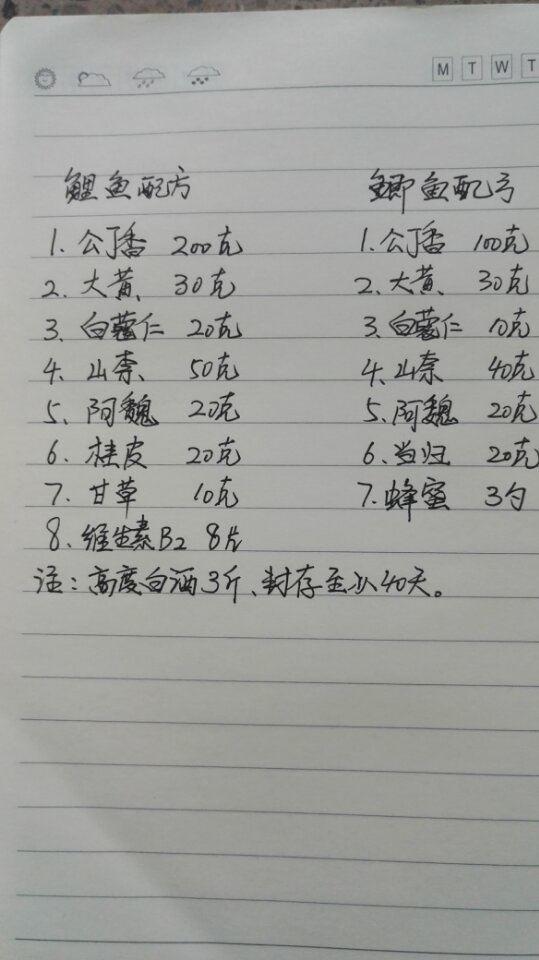 M T W T
鲤鱼配方 鲫鱼配方
1. 公丁香 200克 1. 公丁香 100克
2. 大黄、 30克 2. 大黄、 30克
3. 白蔻仁 20克 3. 白蔻仁 10克
4. 山柰、 50克 4. 山奈 40克
5. 阿魏 20克 5. 阿魏 20克
6. 桂皮 20克 6. 当归 20克
7. 甘草 10克 7. 蜂蜜 3勺
8. 维生素B2 8片
注：高度白酒3斤、封存至少40天。